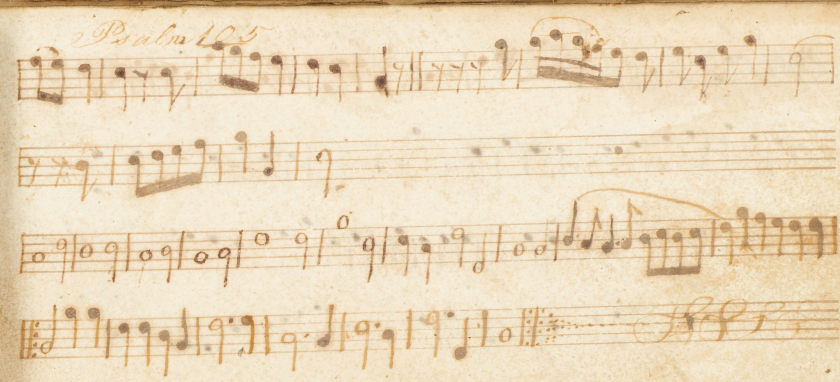 Psalm 105